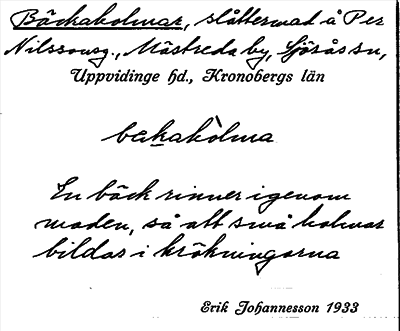 Bäckakolmar, slåttermad å Per
Nilssonsg., Mästreda by, Sjösås sn,
Uppvidinge hd., Kronobergs län
bɛkakòlma
En bäck rinner igenom
maden, så att små holmar
bildas i krökningarna
Erik Johannesson 1933